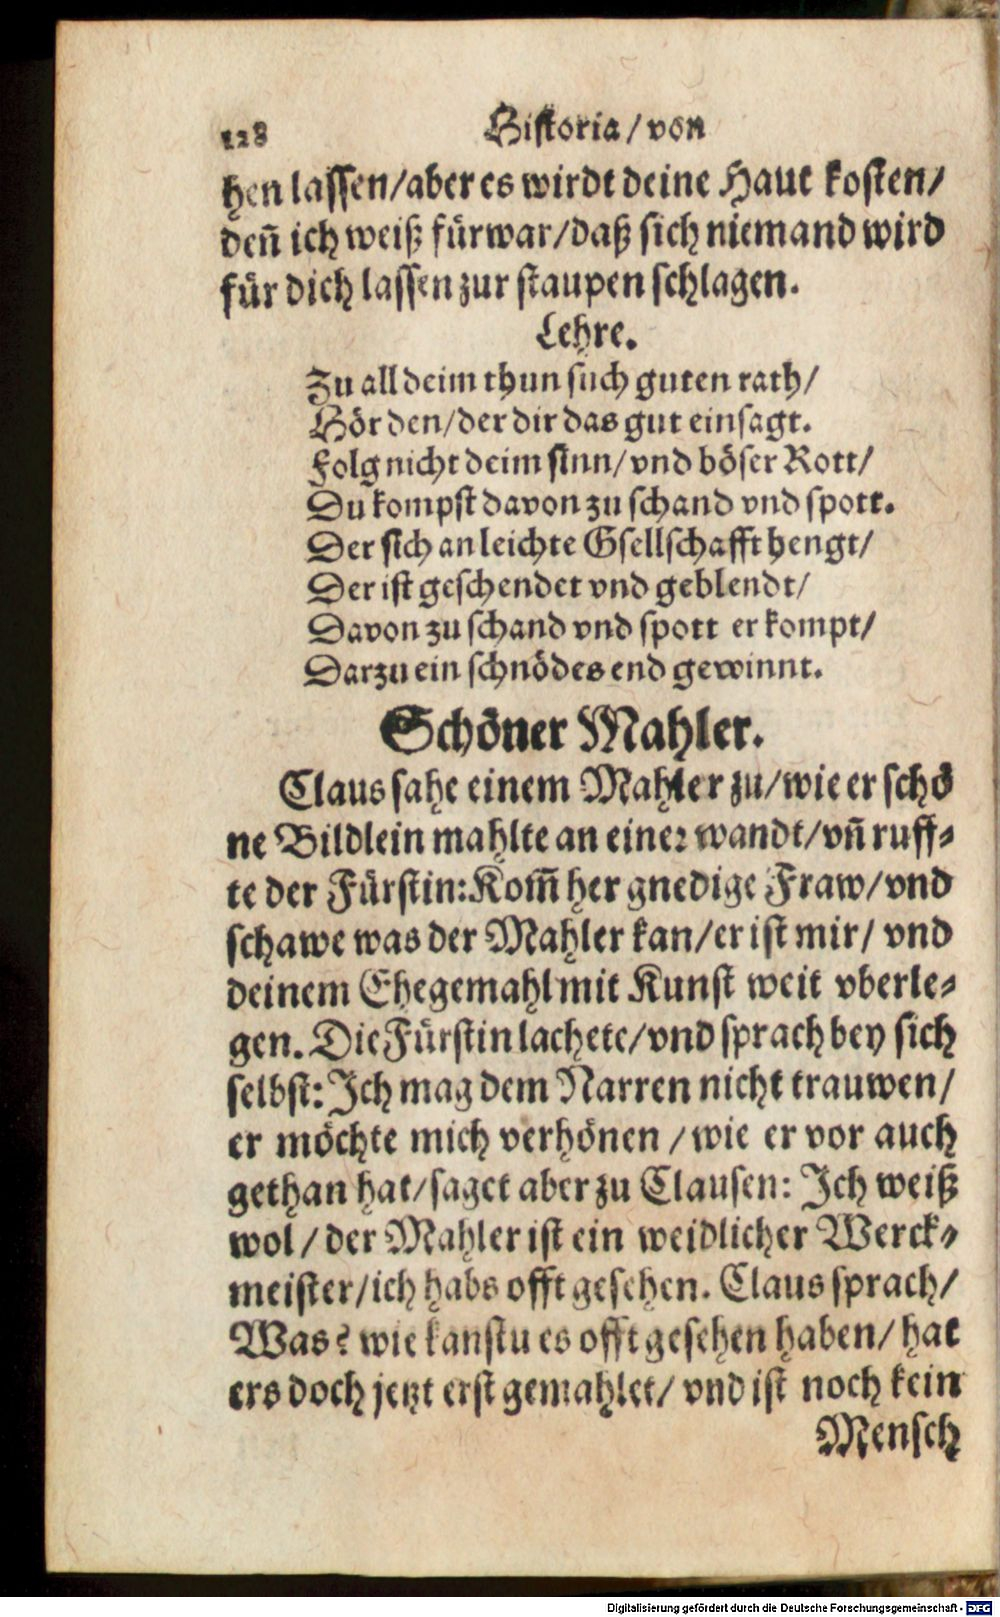 128 Historia/ von
hen lassen/ aber es wirdt deine Haut kosten/
deñ ich weiß fürwar/ daß sich niemand wird
für dich lassen zur staupen schlagen.
Lehre.
Zu all deim thun such guten rath/
Hör den/ der dir das gut einsagt.
Folg nicht deim sinn/ vnd böser Rott/
Du kompst davon zu schand vnd spott.
Der sich an leichte Gsellschafft hengt/
Der ist geschendet vnd geblendt/
Davon zu schand vnd spott er kompt/
Darzu ein schnödes end gewinnt.
Schöner Mahler.
Claus sahe einem Mahler zu/ wie er schö
ne Bildlein mahlte an einer wandt/ vñ ruff-
te der Fürstin: Kom̃ her gnedige Fraw/ vnd
schawe was der Mahler kan/ er ist mir/ vnd
deinem Ehegemahl mit Kunst weit vberle-
gen. Die Fürstin lachete/ vnd sprach bey sich
selbst: Ich mag dem Narren nicht trauwen/
er möchte mich verhönen/ wie er vor auch
gethan hat/ saget aber zu Clausen: Ich weiß
wol/ der Mahler ist ein weidlicher Werck-
meister/ ich habs offt gesehen. Claus sprach/
Was? wie kanstu es offt gesehen haben/ hat
ers doch jetzt erst gemahlet/ vnd ist noch kein
Mensch
Digitalisierung gefördert durch die Deutsche Forschungsgemeinschaft - DFG